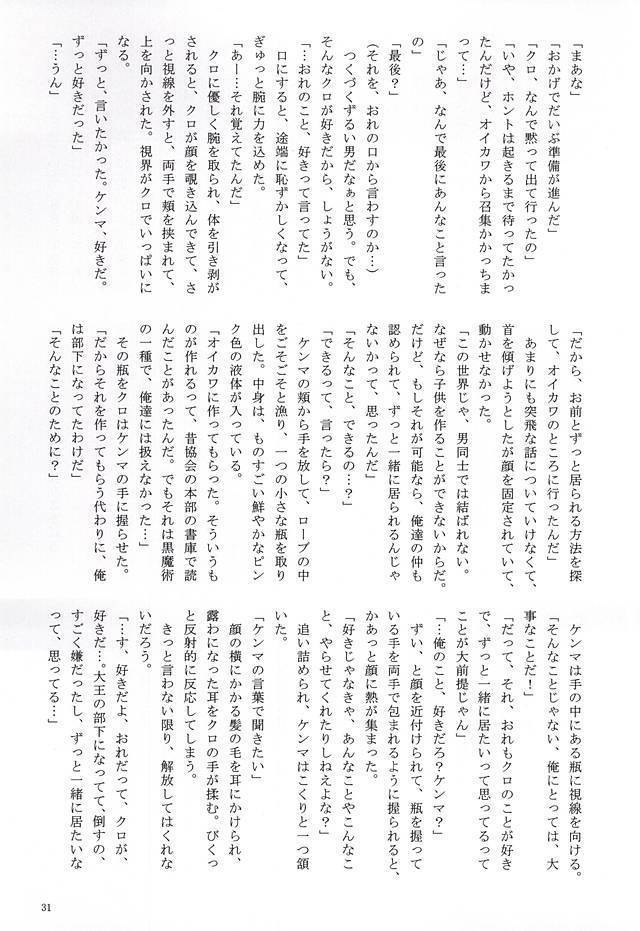 「まあな」
「おかげでだいぶ準備が進んだ」
「クロ、なんで黙って出て行ったの」
「いや、ホントは起きるまで待ってたかっ
たんだけど、オイカワから召集かかっちま
って…」
「じゃあ、なんで最後にあんなこと言った
の」
「最後？」
（それを、おれの口から言わすのか…）
つくづくずるい男だなぁと思う。でも、
そんなクロが好きだから、しょうがない。
「…おれのこと、好きって言ってた」
口にすると、途端に恥ずかしくなって、
ぎゅっと腕に力を込めた。
「あー…それ覚えてたんだ」
クロに優しく腕を取られ、体を引き剥が
されると、クロが顔を覗き込んできて、さ
っと視線を外すと、両手で頬を挟まれて、
上を向かされた。視界がクロでいっぱいに
なる。
「ずっと、言いたかった。ケンマ、好きだ。
ずっと好きだった」
「…うん」
「だから、お前とずっと居られる方法を探
して、オイカワのところに行ったんだ」
あまりにも突飛な話についていけなくて、
首を傾げようとしたが顔を固定されていて、
動かせなかった。
「この世界じゃ、男同士では結ばれない。
なぜなら子供を作ることができないからだ。
だけど、もしそれが可能なら、俺達の仲も
認められて、ずっと一緒に居られるんじゃ
ないかって、思ったんだ」
「そんなこと、できるの…？」
「できるって、言ったら？」
ケンマの頬から手を放して、ローブの中
をごそごそと漁り、一つの小さな瓶を取り
出した。中身は、ものすごい鮮やかなピン
ク色の液体が入っている。
「オイカワに作ってもらった。そういうも
のが作れるって、昔協会の本部の書庫で読
んだことがあったんだ。でもそれは黒魔術
の一種で、俺達には扱えなかった…」
その瓶をクロはケンマの手に握らせた。
「だからそれを作ってもらう代わりに、俺
は部下になってたわけだ」
「そんなことのために？」
ケンマは手の中にある瓶に視線を向ける。
「そんなことじゃない、俺にとっては、大
事なことだ！」
「だって、それ、おれもクロのことが好き
で、ずっと一緒に居たいって思ってるって
ことが大前提じゃん」
「…俺のこと、好きだろ？ケンマ？」
ずい、と顔を近付けられて、瓶を握って
いる手を両手で包まれるように握られると、
かあっと顔に熱が集まった。
「好きじゃなきゃ、あんなことやこんなこ
と、やらせてくれたりしねえよな？」
追い詰められ、ケンマはこくりと一つ頷
いた。
「ケンマの言葉で聞きたい」
顔の横にかかる髪の毛を耳にかけられ、
露わになった耳をクロの手が揉む。びくっ
と反射的に反応してしまう。
きっと言わない限り、解放してはくれな
いだろう。
「…す、好きだよ、おれだって、クロが、
好きだ…。大王の部下になってて、倒すの、
すごく嫌だったし、ずっと一緒に居たいな
って、思ってる…」
31